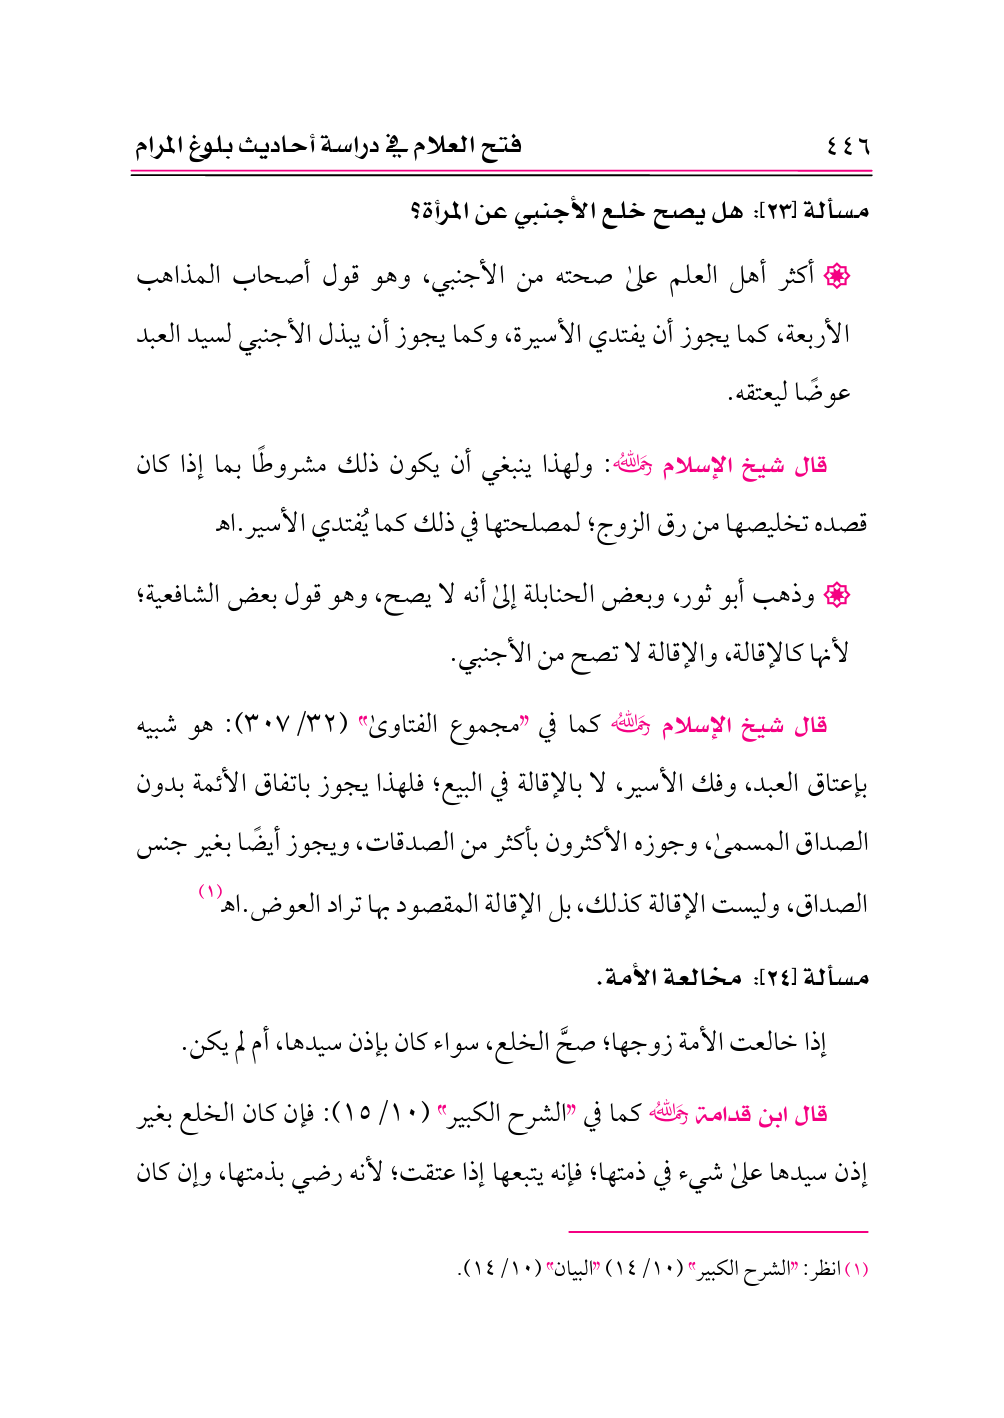 ٤٤٦ فتح العلام في دراسة أحاديث بلوغ المرام
مسألة [٢٣]: هل يصح خلع الأجنبي عن المرأة؟
أكثر أهل العلم علىٰ صحته من الأجنبي، وهو قول أصحاب المذاهب
الأربعة، كما يجوز أن يفتدي الأسيرة، وكما يجوز أن يبذل الأجنبي لسيد العبد
عوضًا ليعتقه.
قال شيخ الإسلام رحمه الله: ولهذا ينبغي أن يكون ذلك مشروطًا بما إذا كان
قصده تخليصها من رق الزوج؛ لمصلحتها في ذلك كما يُفتدي الأسير.اهـ
وذهب أبو ثور، وبعض الحنابلة إلىٰ أنه لا يصح، وهو قول بعض الشافعية؛
لأنها كالإقالة، والإقالة لا تصح من الأجنبي.
قال شيخ الإسلام رحمه الله كما في "مجموع الفتاوىٰ" (٣٢/ ٣٠٧): هو شبيه
بإعتاق العبد، وفك الأسير، لا بالإقالة في البيع؛ فلهذا يجوز باتفاق الأئمة بدون
الصداق المسمىٰ، وجوزه الأكثرون بأكثر من الصدقات، ويجوز أيضًا بغير جنس
الصداق، وليست الإقالة كذلك، بل الإقالة المقصود بها تراد العوض.اهـ(١)
مسألة [٢٤]: مخالعة الأمة.
إذا خالعت الأمة زوجها؛ صحَّ الخلع، سواء كان بإذن سيدها، أم لم يكن.
قال ابن قدامة رحمه الله كما في "الشرح الكبير" (١٠/ ١٥): فإن كان الخلع بغير
إذن سيدها علىٰ شيء في ذمتها؛ فإنه يتبعها إذا عتقت؛ لأنه رضي بذمتها، وإن كان
(١) انظر: "الشرح الكبير" (١٠/ ١٤) "البيان" (١٠/ ١٤).